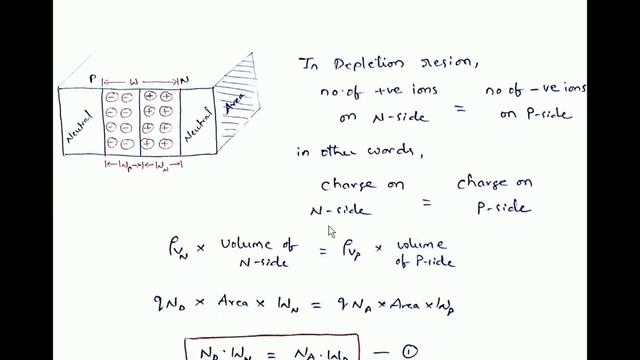 P W N
Neutral
⊖ ⊖ ⊕ ⊕
⊖ ⊖ ⊕ ⊕
⊖ ⊖ ⊕ ⊕
⊖ ⊖ ⊕ ⊕
Neutral
Area
Wp WN
In Depletion region,
no. of +ve ions on N-side = no of -ve ions on P-side
in other words,
charge on N-side = charge on P-side
ρVN × volume of N-side = ρVP × volume of P-side
qND × Area × WN = qNA × Area × Wp
ND · WN = NA · Wp — ①